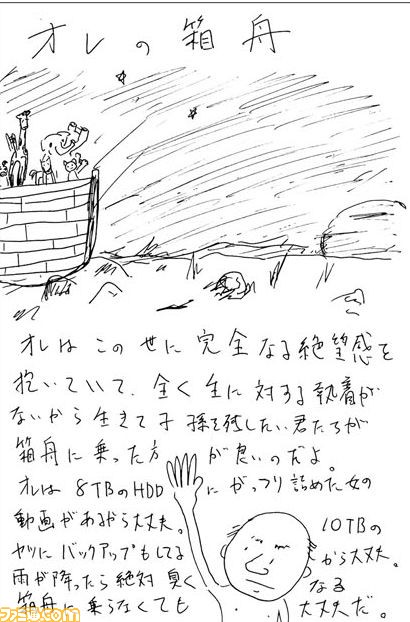 オレの箱舟
オレはこの世に完全なる絶望感を
抱いていて、全く生に対する執着が
ないから生きて子孫を残したい君たちが
箱舟に乗った方が良いのだよ。
オレは8TBのHDDにがっつり詰めた女の
動画があるから大丈夫。10TBの
ヤツにバックアップもしてるから大丈夫。
雨が降ったら絶対臭くなる
箱舟に乗らなくても大丈夫だ。
ファミ通.com